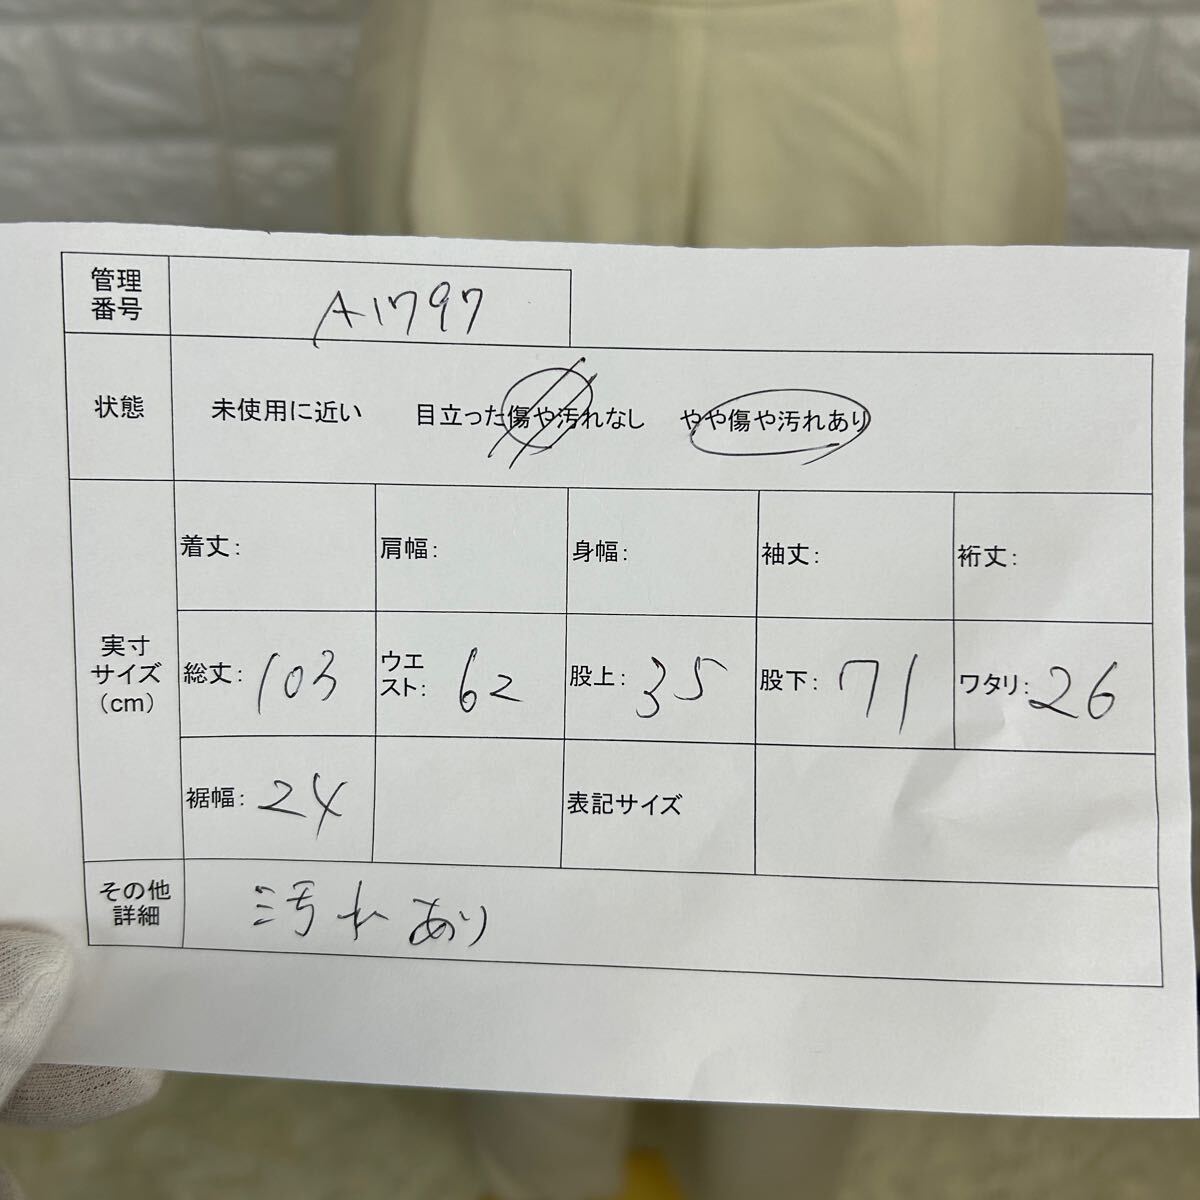 管理
番号
A1797
状態
未使用に近い 目立った傷や汚れなし やや傷や汚れあり
実寸
サイズ
(cm)
着丈: 肩幅: 身幅: 袖丈: 裄丈:
総丈: 103 ウエ
スト: 62 股上: 35 股下: 71 ワタリ: 26
裾幅: 24 表記サイズ
その他
詳細
汚れあり